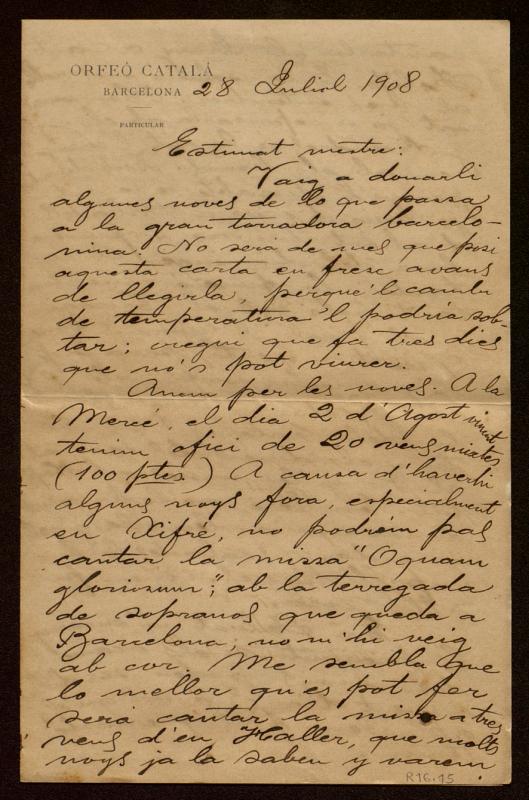 ORFEÓ CATALÁ
BARCELONA
PARTICULAR
28 Juliol 1908
Estimat mestre:
Vaig a donarli
algunes noves de lo que passa
a la gran torradora barcelo-
nina. No será de mes que posi
aquesta carta en fresc avans
de llegirla, perque 'l cambi
de temperatura 'l podría sob-
tar; cregui que fa tres dies
que nó's pot viurer.
Anem per les noves. A la
Mercé, el dia 2 d'Agost vinent
tenim ofici de 20 veus mixtes
(100 ptes) A causa d'haverhi
alguns noys fora, especialment
en Xifré, no podrém pas
cantar la missa "O quam
gloriosum"; ab la terregada
de sopranos que queda a
Barcelona, no m'hi veig
ab cor. Me sembla que
lo mellor qu'es pot fer
será cantar la missa a tres
veus d'en Haller, que molts
noys ja la saben y varem
R16.15